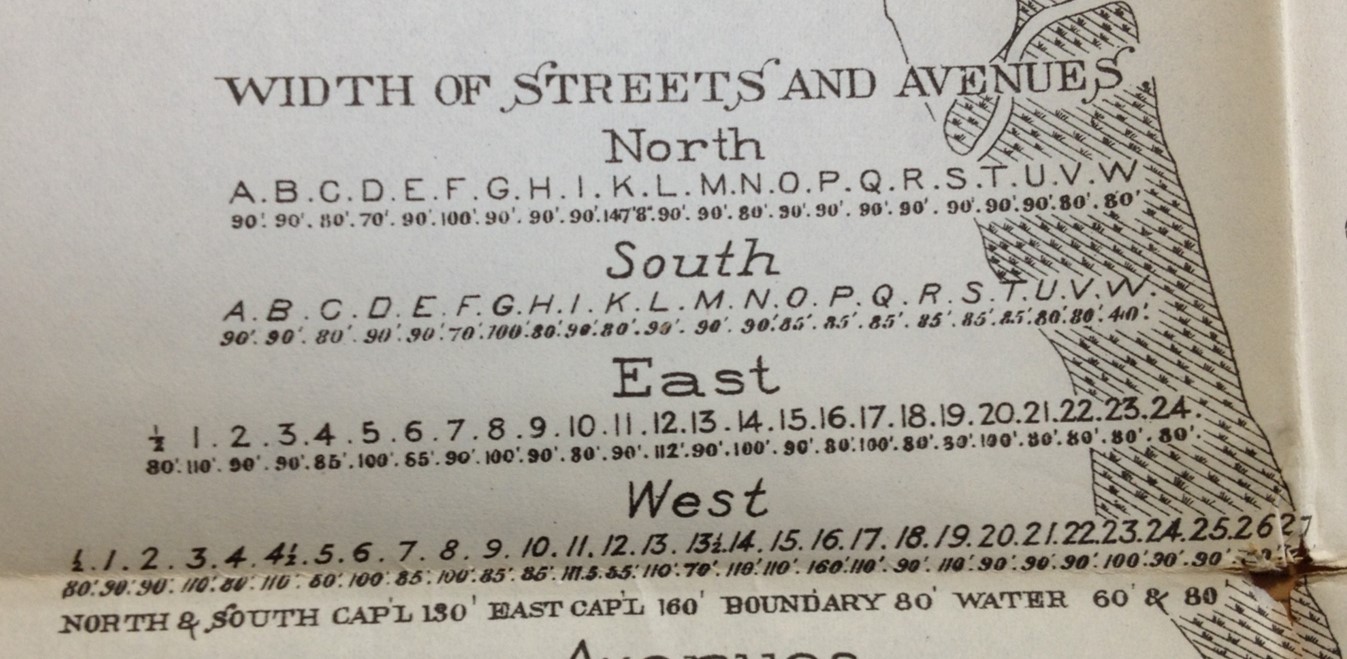 WIDTH OF STREETS AND AVENUES
North
A. B. C. D. E. F. G. H. I. K. L. M. N. O. P. Q. R. S. T. U. V. W
90'. 90'. 80'. 70'. 90'. 100'. 90'. 90'. 90'. 147'8". 90'. 90'. 80'. 90'. 90'. 90'. 90'. 90'. 90'. 90'. 80'. 80'
South
A. B. C. D. E. F. G. H. I. K. L. M. N. O. P. Q. R. S. T. U. V. W.
90'. 90'. 80'. 90'. 90'. 70'. 100'. 80'. 90'. 80'. 90'. 90'. 90'. 85'. 85'. 85'. 85'. 85'. 85'. 80'. 80'. 40'.
East
½ 1. 2. 3. 4. 5. 6. 7. 8. 9. 10. 11. 12. 13. 14. 15. 16. 17. 18. 19. 20. 21. 22. 23. 24.
80'. 110'. 90'. 90'. 85'. 100'. 85'. 90'. 100'. 90'. 80'. 90'. 112'. 90'. 100'. 90'. 80'. 100'. 80'. 100'. 80'. 80'. 80'. 80'.
West
½. 1. 2. 3. 4. 4½. 5. 6. 7. 8. 9. 10. 11. 12. 13. 13½. 14. 15. 16. 17. 18. 19. 20. 21. 22. 23. 24. 25. 26 27
80'. 90'. 90'. 110'. 80'. 110'. 60'. 100'. 85'. 100'. 85'. 85'. 111.5. 85'. 110'. 70'. 110'. 110'. 160'. 110'. 90'. 110'. 90'. 90'. 90'. 90'. 100'. 90'. 90'.
NORTH & SOUTH CAP'L 130' EAST CAP'L 160' BOUNDARY 80' WATER 60' & 80